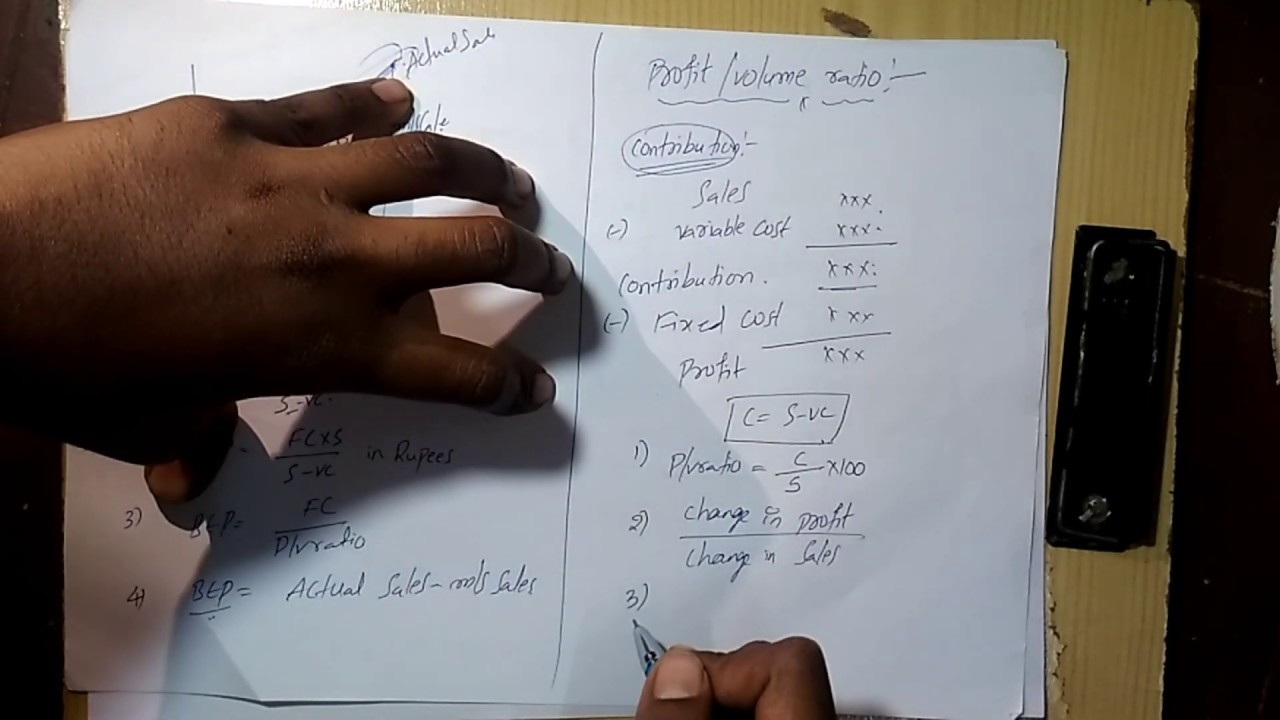 Actual Sale
S-VC.
= FC×S / S-VC in Rupees
3) BEP = FC / P/vratio
4) BEP = Actual Sales - mols Sales
Profit/volume ratio:-
Contribution:-
Sales xxx.
(-) variable cost xxx.
Contribution. xxx:
(-) Fixed cost xxx
Profit xxx
C = S-VC
1) P/vratio = C/S ×100
2) Change in profit
Change in Sales
3)